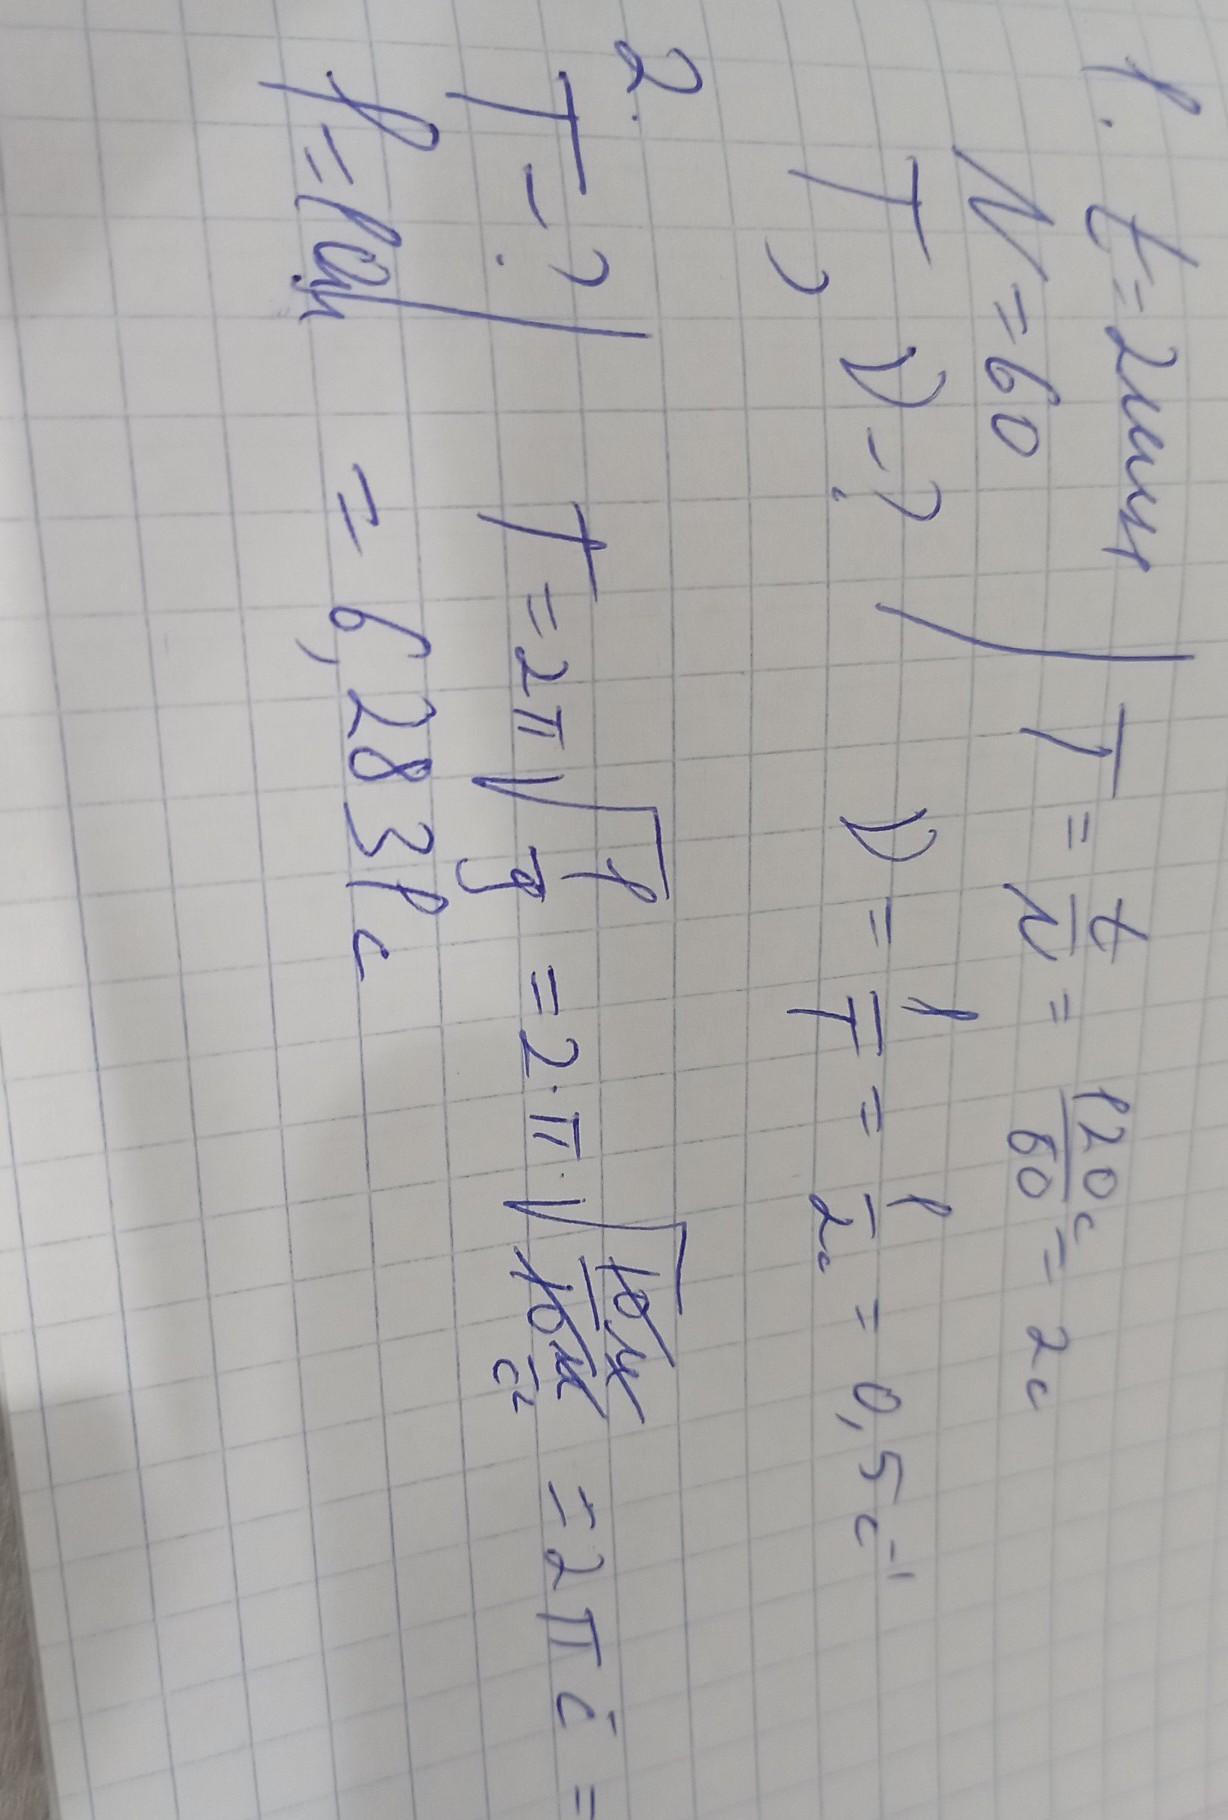 1. t = 2мин
N = 60
T, ν - ?
T = t/N = 120с/60 = 2с
ν = 1/T = 1/2с = 0,5с⁻¹
2.
T - ?
l = 10м
T = 2π√(l/g) = 2·π·√(10м/10м/с²) = 2π с =
= 6,2831с